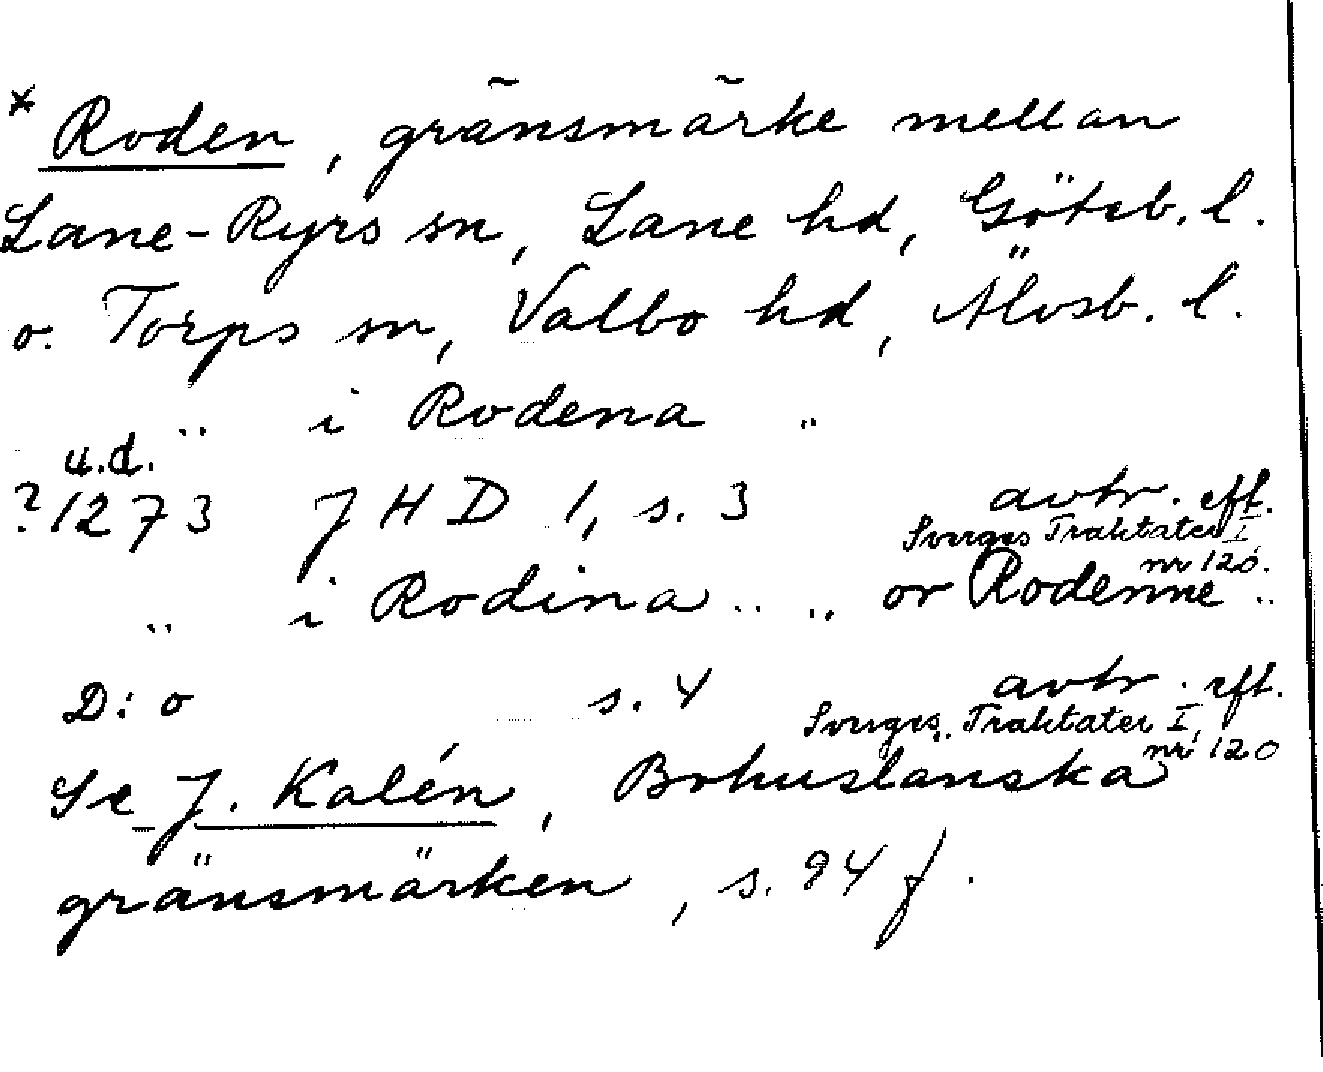 * Roden, gränsmärke mellan
Lane-Ryrs sn, Lane hd, Göteb. l.
o. Torps sn, Valbo hd, Älvsb. l.
" i Rodena "
u.d.
?1273 JHD 1, s. 3 avtr. eft.
Sverges Traktater I
nr 120.
" i Rodina " " or Rodenne "
D:o s. 4 avtr. eft.
Sverges Traktater I,
nr 120
Se J. Kalén, Bohuslänska
gränsmärken, s. 94 f.